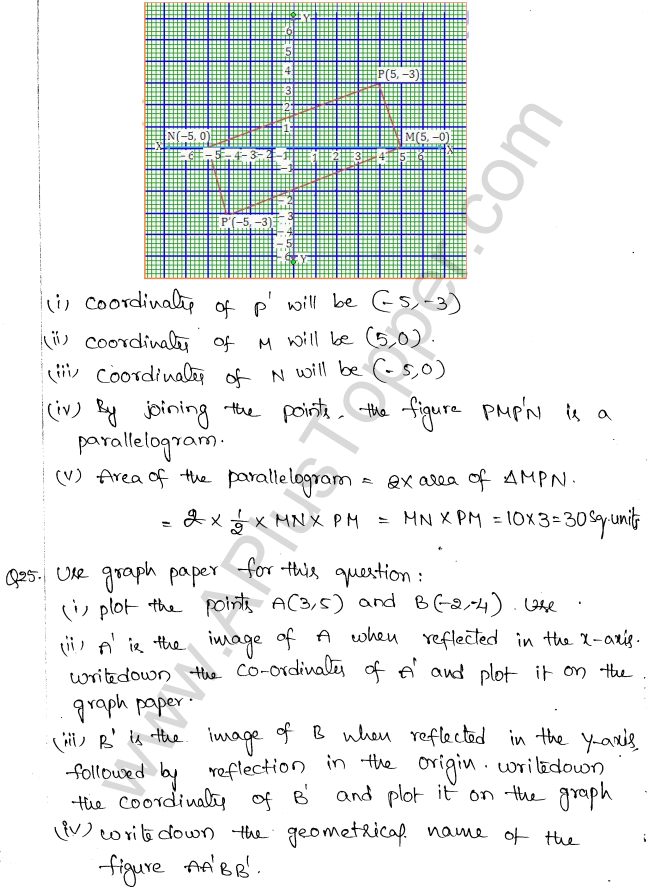 Y
6
5
4
3
2
1
P(5, −3)
N(−5, 0)
M(5, −0)
X −6 −5 −4 −3 −2 −1 1 2 3 4 5 6 X
−1
−2
−3
−4
−5
−6
P'(−5, −3)
Y
(i) Coordinates of P' will be (-5,-3)
(ii) Coordinates of M will be (5,0).
(iii) Coordinates of N will be (-5,0)
(iv) By joining the points, the figure PMP'N is a
parallelogram.
(v) Area of the parallelogram = 2x area of ΔMPN.
= 2 × 1/2 × MN × PM = MN × PM = 10×3 = 30 Sq.units
Q25. Use graph paper for this question:
(i) plot the points A(3,5) and B(-2,-4). Use
(ii) A' is the image of A when reflected in the x-axis.
writedown the co-ordinates of A' and plot it on the
graph paper.
(iii) B' is the image of B when reflected in the Y-axis,
followed by reflection in the origin. writedown
the coordinates of B' and plot it on the graph
(iv) writedown the geometrical name of the
figure AA'BB'.
www.APlusTopper.com